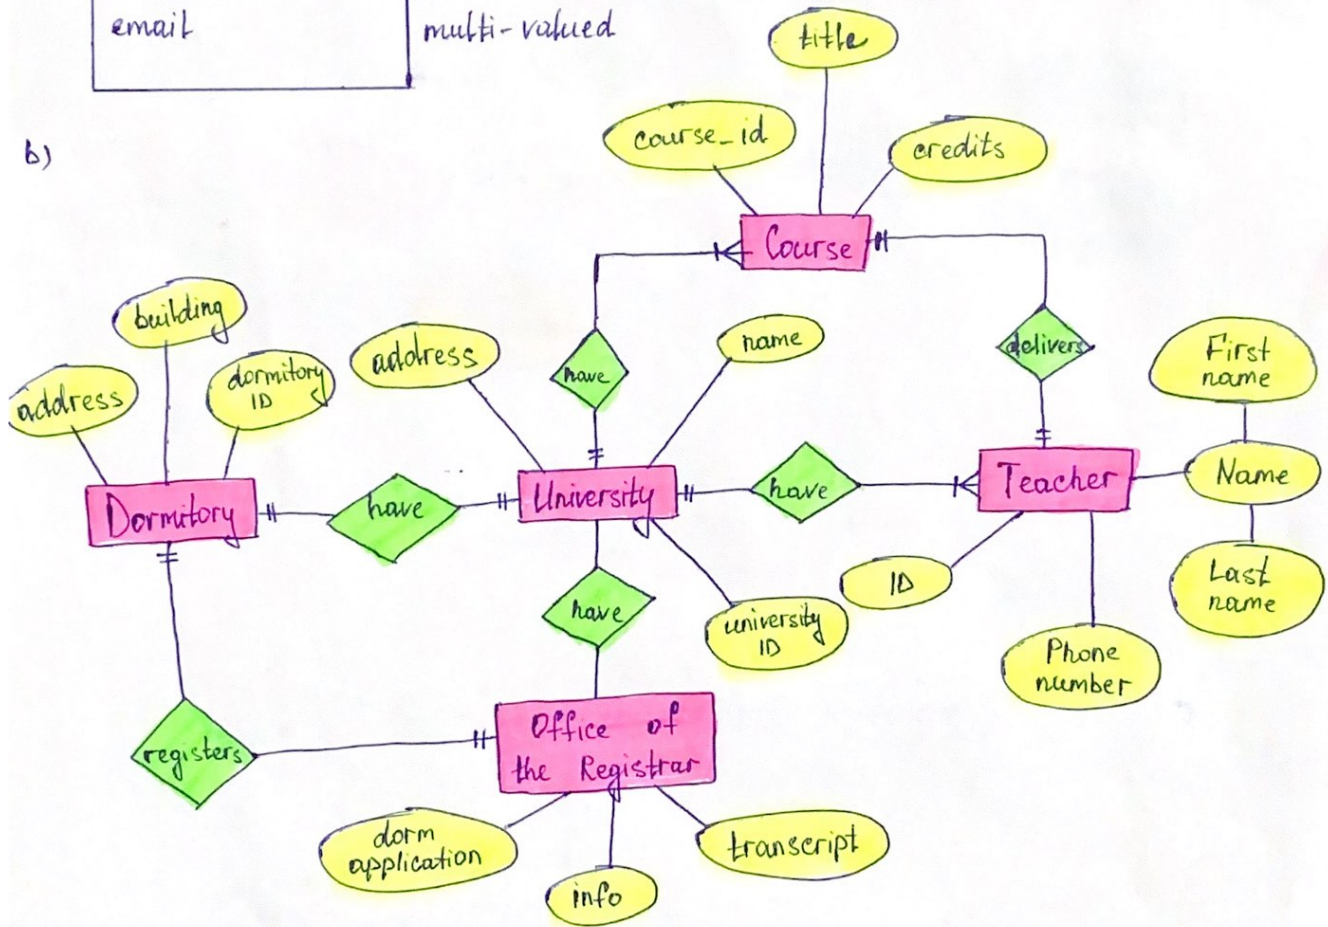 email
multi-valued
b)
title
course_id
credits
Course
building
address
dormitory
ID
address
name
have
delivers
First
name
Dormitory
have
University
have
Teacher
Name
have
ID
university
ID
Last
name
Phone
number
registers
Office of
the Registrar
dorm
application
info
transcript